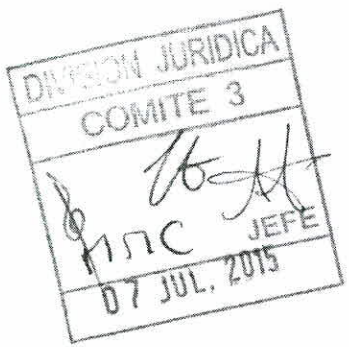 DIVISION JURIDICA
COMITE 3
JEFE
07 JUL. 2015